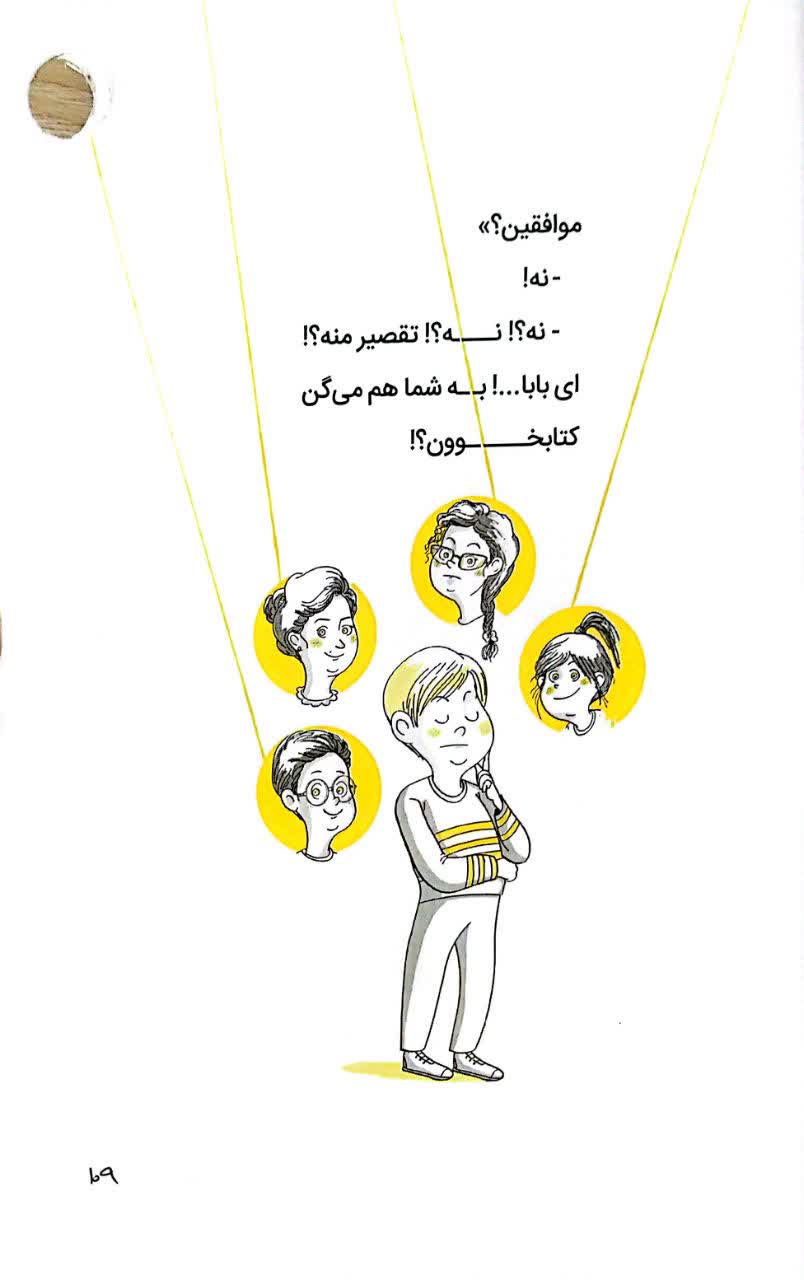 موافقین؟»
- نه!
- نه؟! نـــــه؟! تقصیر منه؟!
ای بابا...! بـــه شما هم می‌گن
کتابخــــــــوون؟!